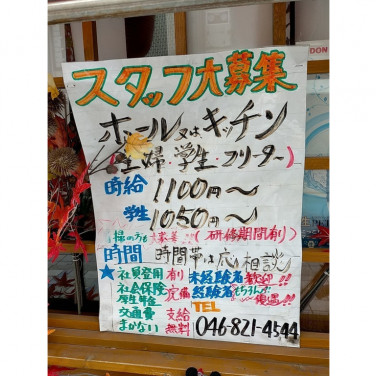 スタッフ大募集
ホール又はキッチン
(主婦・学生・フリーター)
時給 1100円〜
学生 1050円〜
(研修期間有)
時間 時間帯は応相談
★社員登用 有り 未経験者 歓迎!!
社会保険 完備 経験者 もちろん
厚生年金 優遇!!
交通費 支給 TEL
まかない 無料 046-821-4544
DON